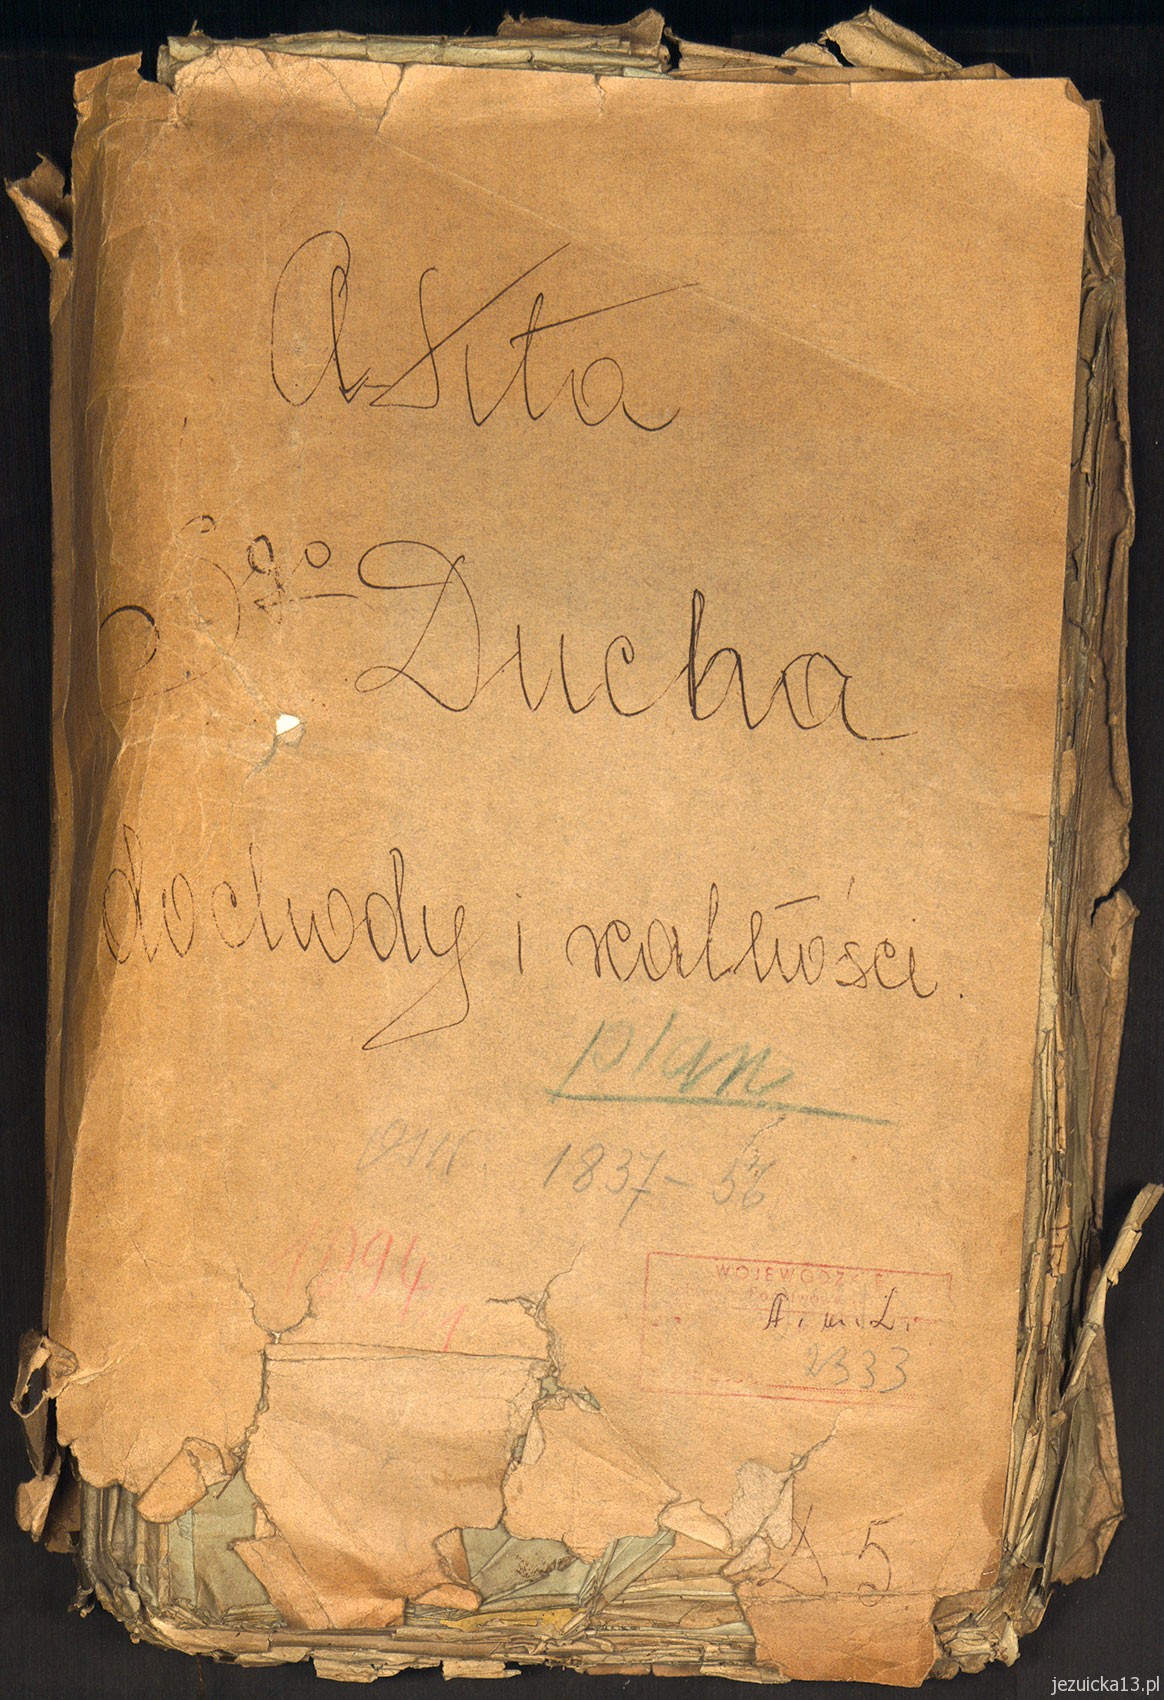 Akta
Sgo Ducha
dochody i zaległości.
plan
1837-56
1094
1
WOJEWÓDZKIE
A. m. L.
2333
X 5
jezuicka13.pl